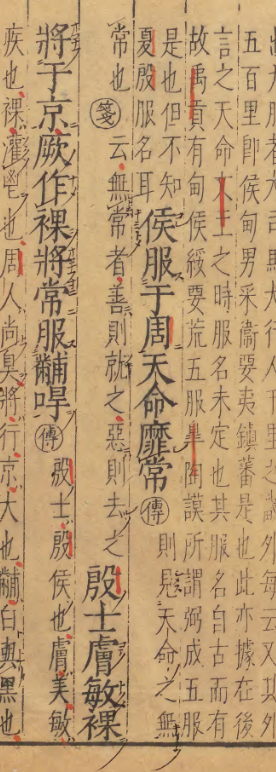 服大司馬大行人千里之畿外每云又其外
五百里即侯甸男采衛要夷鎮蕃是也此亦據在後
言之天命文王之時服名未定也其服名自古而有
故禹貢有甸侯綏要荒五服皐陶謨所謂弼成五服
是也但不知
夏殷服名耳
侯服于周天命靡常傳
則見天命之無
常也箋云無常者善則就之惡則去之
殷士膚敏祼
將于京厥作祼將常服黼冔傳
殷士殷侯也膚美敏
疾也祼灌鬯也周人尚臭將行京大也黼白與黑也